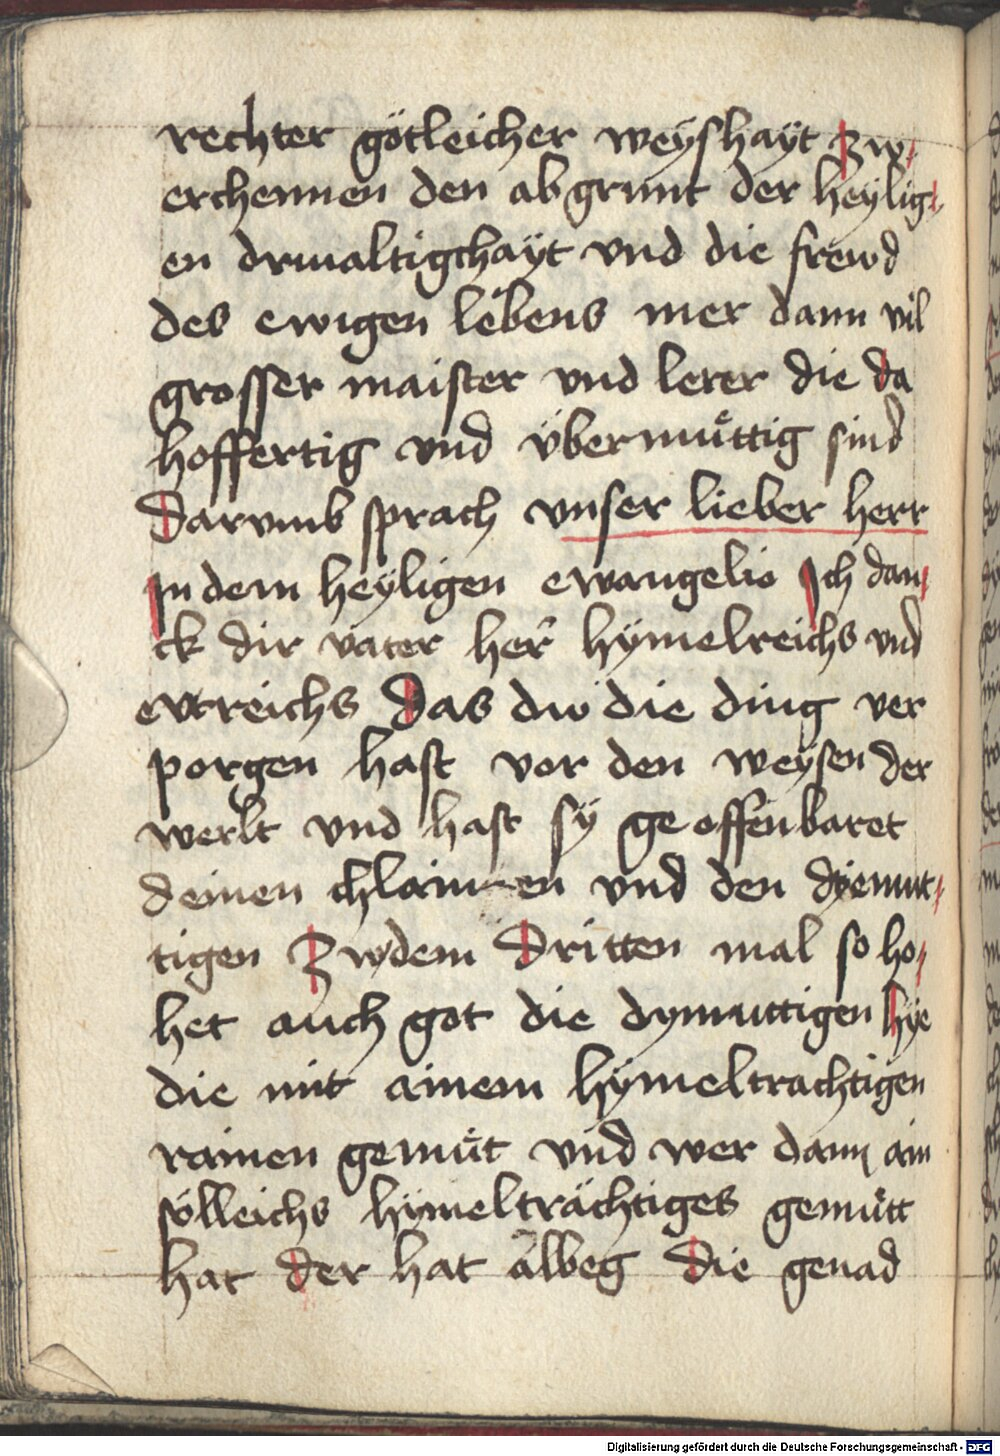 rechter götleicher weÿshaÿt zw
erchennen den abgrunt der heÿlig
en drivaltigchaÿt vnd die frewd
des ewigen lebens mer dann vil
grosser maister vnd lerer die da
hoffertig vnd vbermuͤttig sind
Darvmb sprach vnser lieber herr
In dem heÿligen ewangelio Ich dan
ck dir vater her̄ hÿmelreichs vnd
ertreichs Das dw die ding ver
porgen hast vor den weÿsen der
werlt vnd hast sÿ geoffenbaret
deinen chlainen vnd den dyemut
tigen Zwdem Dritten mal so ho
het auch got die dymuttigen hÿe
die mit ainem hÿmeltrachtigen
rainen gemuͤt vnd wer dann ain
sölleichs hÿmelträchtiges gemuͤtt
hat der hat albeg die genad
Digitalisierung gefördert durch die Deutsche Forschungsgemeinschaft - DFG